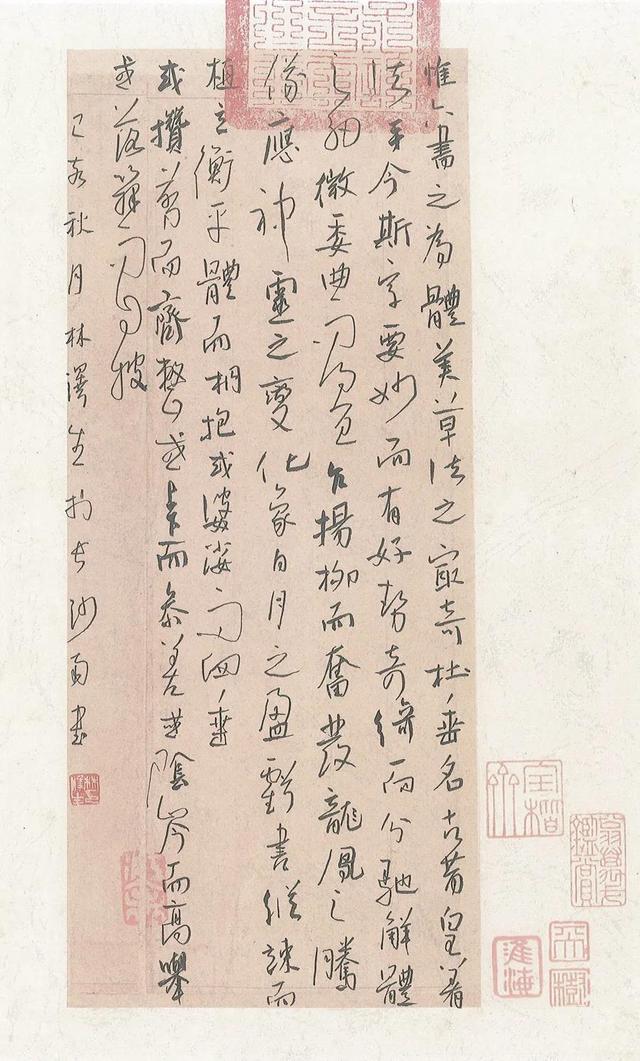 惟六書之為體美草法之最奇杜垂名古昔皇著
法乎今斯字要妙而有好勢奇綺而分馳解體
之細微委曲而得宜乍揚柳而奮發龍鳳之騰
儀應神靈之變化象日月之盈虧書縱竦而
植立衡平體而相抱或婆娑而四垂
或攢剪而齊整或上下而參差或陰岑而高舉
或落籜而自披
己亥秋月林澤生於長沙書